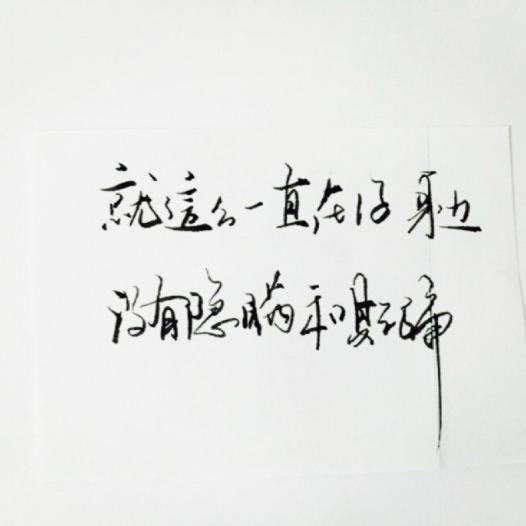 就這么一直在你身边
没有隐瞒和欺骗